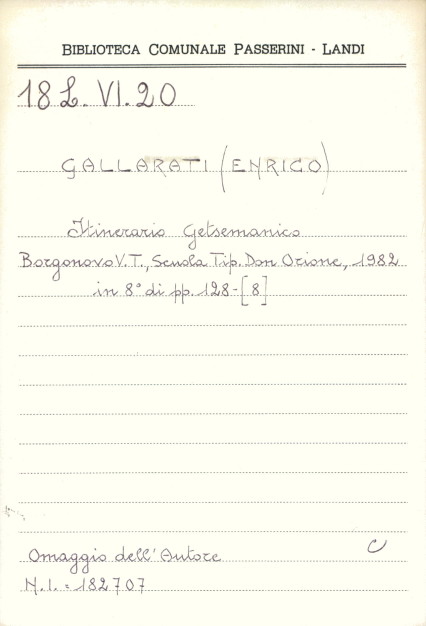 BIBLIOTECA COMUNALE PASSERINI - LANDI
18 L. VI. 20
GALLARATI (ENRICO)
Itinerario Getsemanico
Borgonovo V.T., Scuola Tip. Don Orione, 1982
in 8° di pp. 128-[8]
Omaggio dell'Autore
C
N.I. = 182707